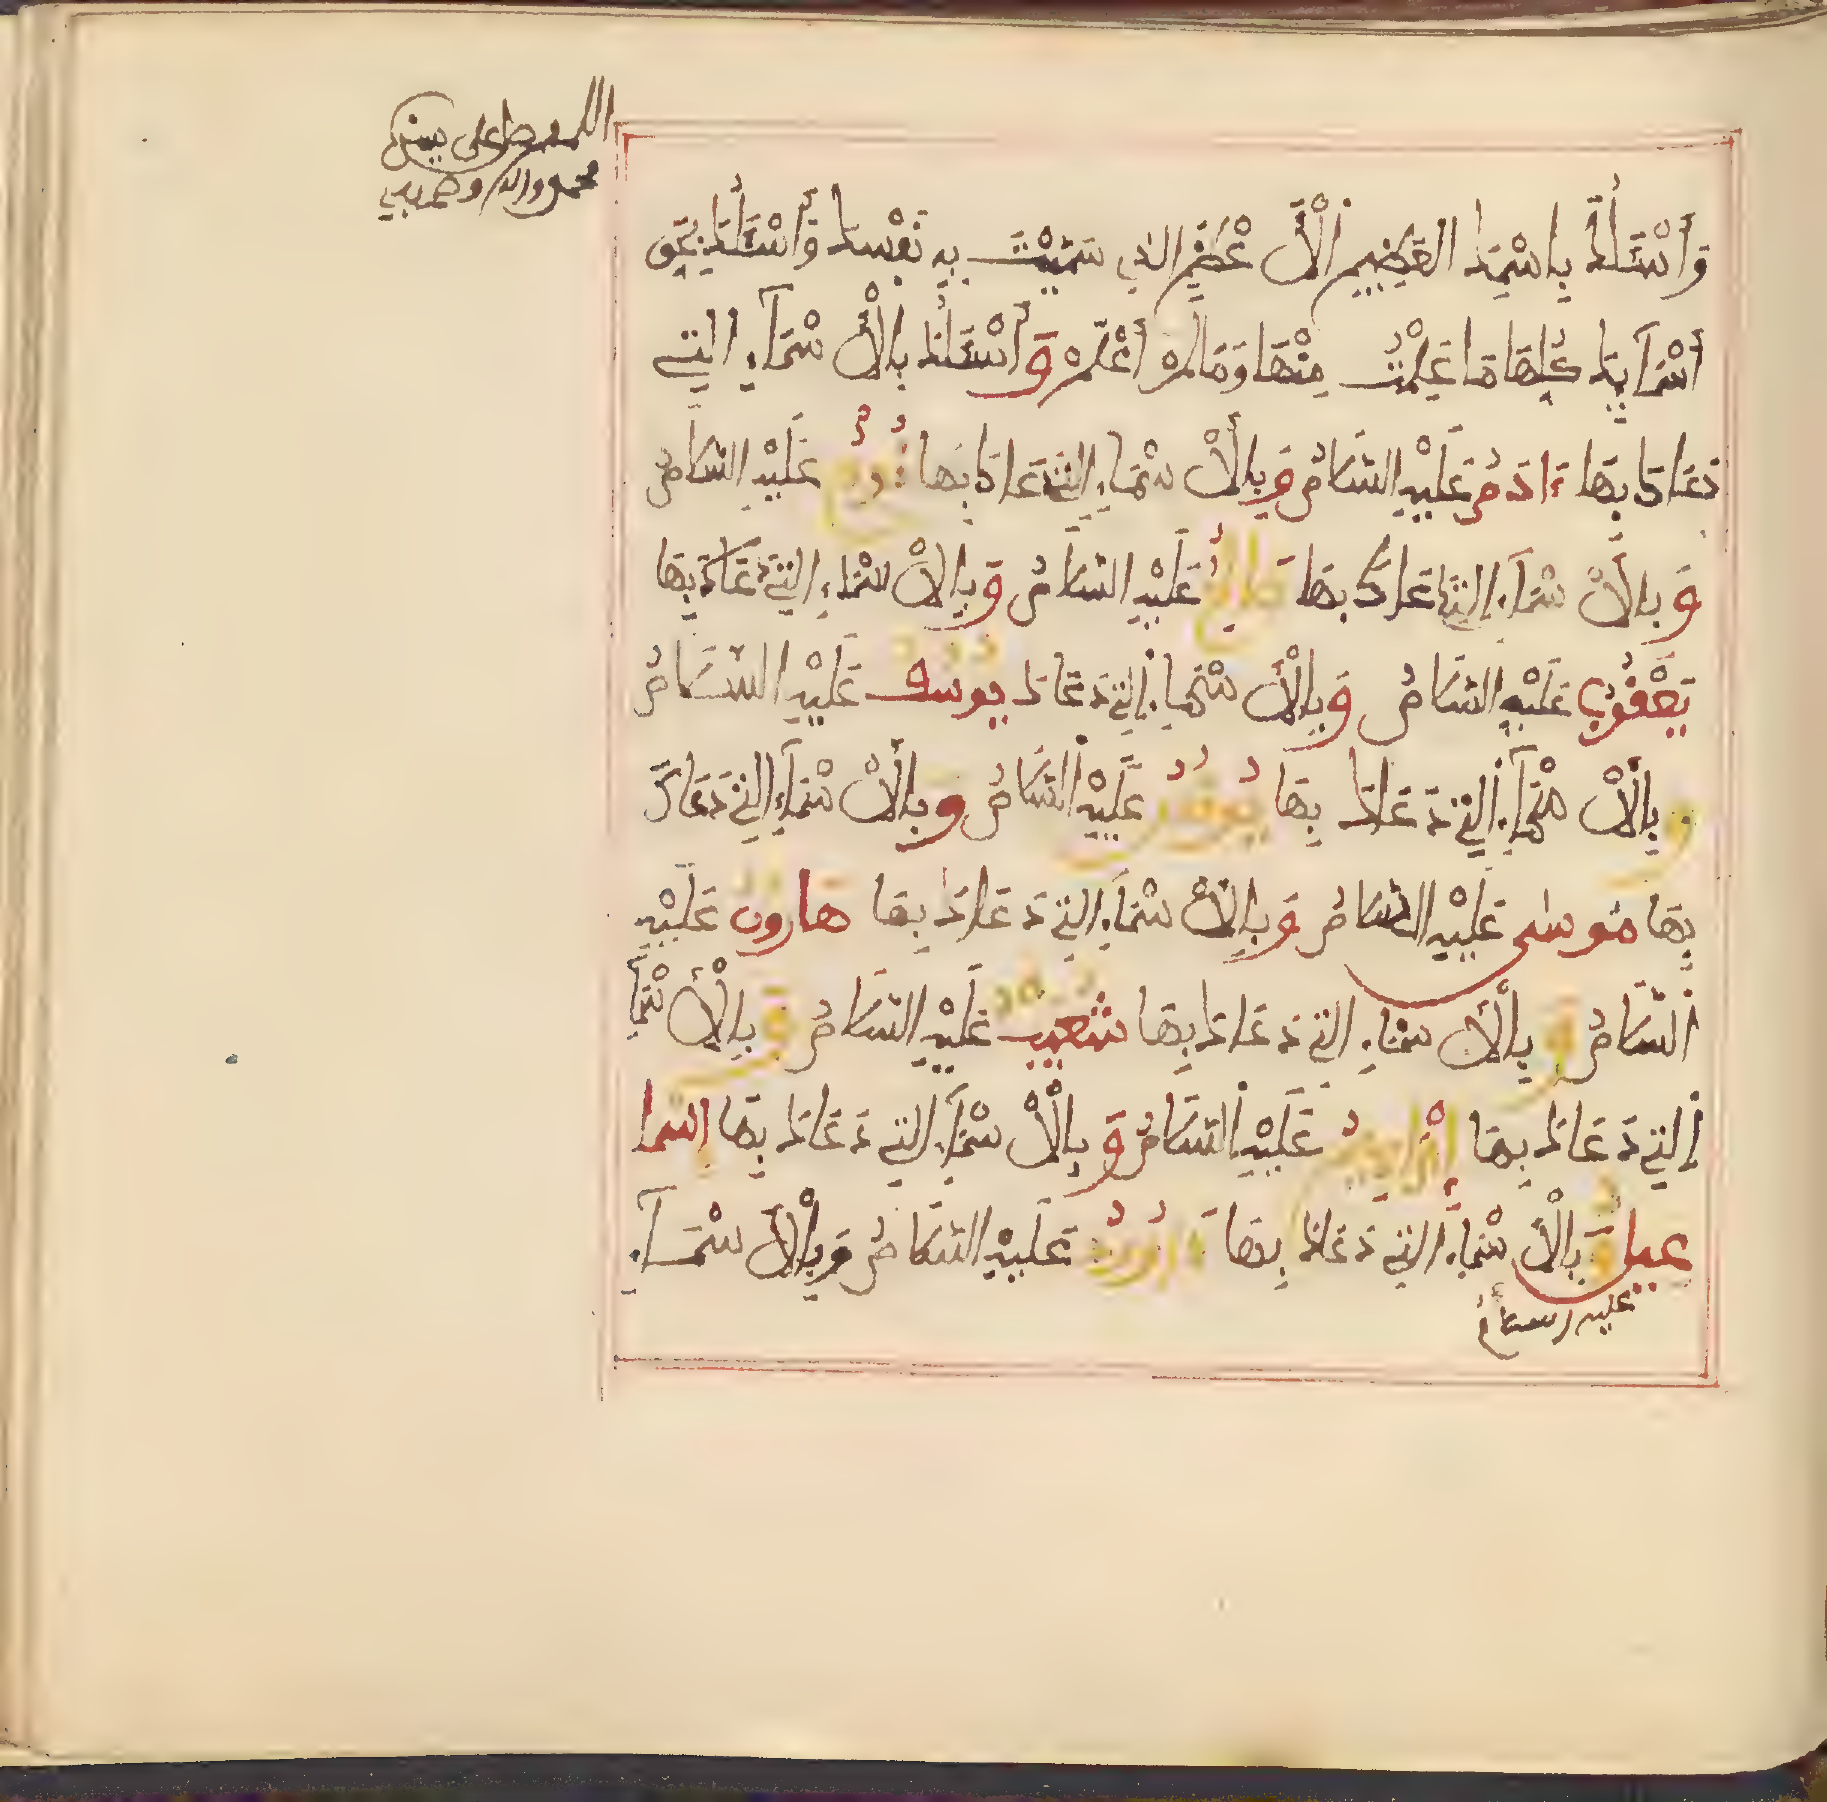 اللهم صل على سيدنا
محمد واله وصحبه
وَأَسْئَلُكَ بِاسْمِكَ الْعَظِيمِ الْأَعْظَمِ الذِي سَمَّيْتَ بِهِ نَفْسَكَ وَأَسْئَلُكَ بِحَقِّ
أَسْمَآئِكَ كُلِّهَا مَا عَلِمْتُ مِنْهَا وَمَا لَمْ أَعْلَمْ وَأَسْئَلُكَ بِالْأَسْمَآءِ التِي
دَعَاكَ بِهَا ءَادَمُ عَلَيْهِ السَّلَامُ وَبِالْأَسْمَاءِ التِي دَعَاكَ بِهَا نُوحُ عَلَيْهِ السَّلَامُ
وَبِالْأَسْمَآءِ التِي دَعَاكَ بِهَا صَالِحُ عَلَيْهِ السَّلَامُ وَبِالْأَسْمَاءِ التِي دَعَاكَ بِهَا
يَعْقُوبُ عَلَيْهِ السَّلَامُ وَبِالْأَسْمَاءِ التِي دَعَاكَ يوسف عَلَيْهِ السَّلَامُ
وبِالْأَسْمَآءِ التِي دَعَاكَ بِهَا يُونُسُ عَلَيْهِ السَّلَامُ وبِالْأَسْمَآءِ التِي دَعَاكَ
بِهَا مُوسَى عَلَيْهِ السَّلَامُ وَبِالْأَسْمَآءِ التِي دَعَاكَ بِهَا هارون عَلَيْهِ
السَّلَامُ وَبِالْأَسْمَاءِ التِي دَعَاكَ بِهَا شعيب عَلَيْهِ السَّلَامُ وَبِالْأَسْمَآءِ
التِي دَعَاكَ بِهَا إِبْرَاهِيمُ عَلَيْهِ السَّلَامُ وَبِالْأَسْمَآءِ التِي دَعَاكَ بِهَا إِسْمَا
عيل وَبِالْأَسْمَآءِ التِي دَعَاكَ بِهَا دَاوُودُ عَلَيْهِ السَّلَامُ وَبِالْأَسْمَآءِ
عليه السلام